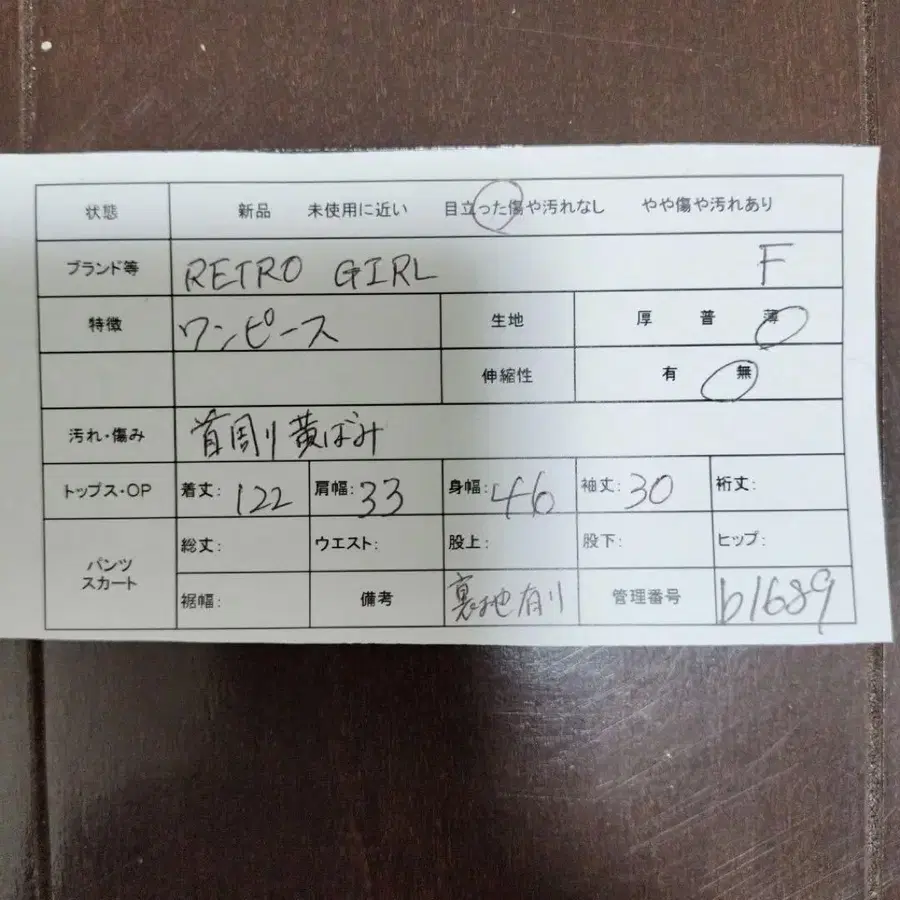 状態 新品 未使用に近い 目立った傷や汚れなし やや傷や汚れあり
ブランド等 RETRO GIRL F
特徴 ワンピース 生地 厚 普 薄
伸縮性 有 無
汚れ・傷み 首周り黄ばみ
トップス・OP 着丈: 122 肩幅: 33 身幅: 46 袖丈: 30 裄丈:
パンツ スカート 総丈: ウエスト: 股上: 股下: ヒップ:
裾幅: 備考 裏地有り 管理番号 b1689